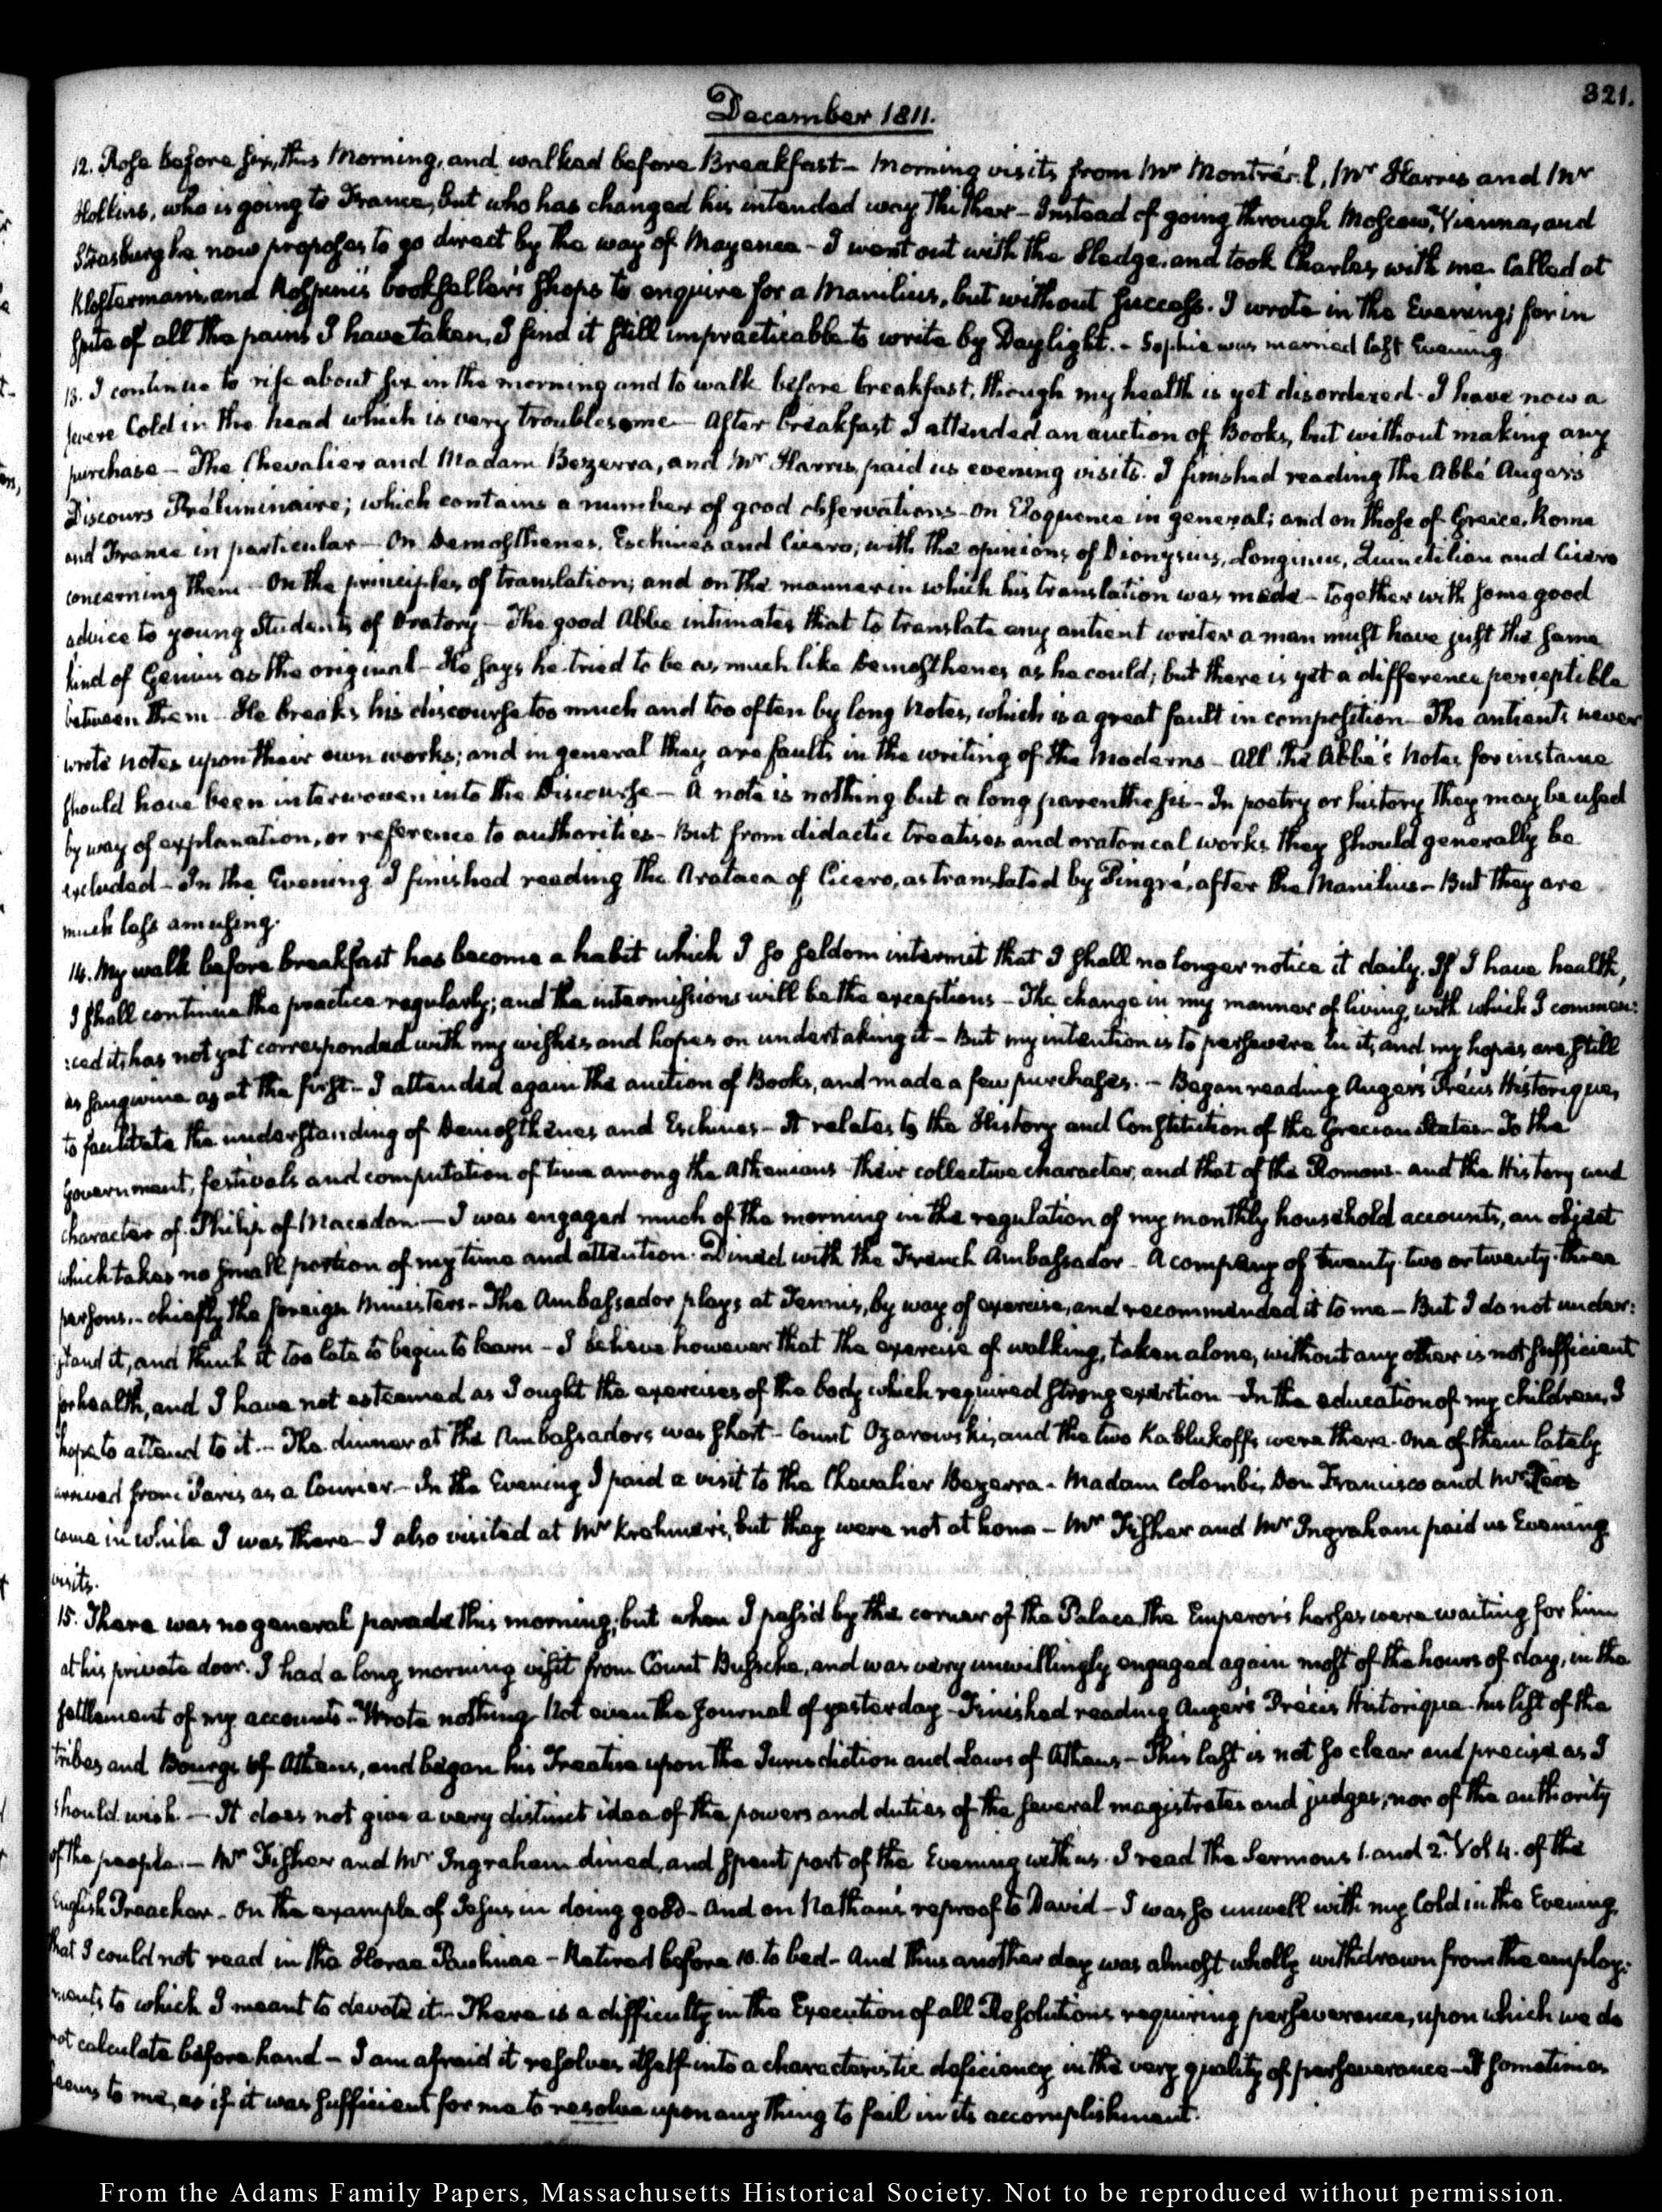 321.
December 1811.
12. Rose before six, this Morning, and walked before Breakfast – Morning visits from Mr Montréal, Mr Harris and Mr
Hollins, who is going to France, but who has changed his intended way thither – Instead of going through Moscow, Vienna, and
Strasburg he now proposes to go direct by the way of Mayence – I went out with the Sledge, and took Charles with me. Called at
Klostermann's, and Rospini's bookseller's shops to enquire for a Manilius, but without success. I wrote in the Evening; for in
spite of all the pains I have taken, I find it still impracticable to write by Daylight. – Sophie was married last Evening
13. I continue to rise about six in the morning and to walk before breakfast, though my health is yet disordered. I have now a
severe Cold in the head which is very troublesome – After breakfast I attended an auction of Books, but without making any
purchase – The Chevalier and Madam Bezerra, and Mr Harris, paid us evening visits. I finished reading the Abbé Auger's
Discours Préliminaire; which contains a number of good observations – On Eloquence in general; and on those of Greece, Rome
and France in particular – On Demosthenes, Eschines and Cicero; with the opinions of Dionysius, Longinus, Quinctilian and Cicero
concerning them – On the principles of translation; and on the manner in which his translation was made – together with some good
advice to young Students of Oratory – The good Abbe intimates that to translate any antient writer a man must have just the same
kind of Genius as the original – He says he tried to be as much like Demosthenes as he could; but there is yet a difference perceptible
between them – He breaks his discourse too much and too often by long Notes, which is a great fault in composition – The antients never
wrote notes upon their own works; and in general they are faults in the writing of the Moderns – All the Abbé's Notes for instance
should have been interwoven into the Discourse – A note is nothing but a long parenthesis – In poetry or history they may be used
by way of explanation, or reference to authorities – But from didactic treatises and oratorical works they should generally be
excluded – In the Evening I finished reading the Arataea of Cicero, as translated by Pingré, after the Manilius – But they are
much less amusing.
14. My walk before breakfast has become a habit which I so seldom intermit that I shall no longer notice it daily. If I have health,
I shall continue the practice regularly; and the intermissions will be the exceptions – The change in my manner of living with which I commen:
:ced it, has not yet corresponded with my wishes and hopes on undertaking it – But my intention is to persevere in it, and my hopes are still
as sanguine as at the first – I attended again the auction of Books, and made a few purchases. – Began reading Auger's Précis Historique,
to facilitate the understanding of Demosthenes and Eschines – It relates to the History and Constitution of the Grecian States – To the
Government, festivals and computation of time among the Athenians – their collective character, and that of the Romans – and the History and
character of Philip of Macedon. – I was engaged much of the morning in the regulation of my monthly household accounts, an object
which takes no small portion of my time and attention. Dined with the French Ambassador – A company of twenty-two or twenty-three
persons. – chiefly the foreign Ministers – The Ambassador plays at Tennis, by way of exercise, and recommended it to me – But I do not under:
:stand it, and think it too late to begin to learn – I believe however that the exercise of walking, taken alone, without any other is not sufficient
for health, and I have not esteemed as I ought the exercises of the body which required strong exertion – In the education of my children, I
hope to attend to it. – The dinner at the Ambassadors was short – Count Ozarowski, and the two Kablukoffs were there. One of them lately
arrived from Paris as a Courier – In the Evening I paid a visit to the Chevalier Bezerra – Madam Colombi, Don Francisco and Mr
came in while I was there – I also visited at Mr Krehmer's, but they were not at home – Mr Fisher and Mr Ingraham paid us Evening
visits.
15. There was no general parade this morning; but when I pass'd by the corner of the Palace the Emperor's horses were waiting for him
at his private door. I had a long morning visit from Count Bussche, and was very unwillingly engaged again most of the hours of day, in the
settlement of my accounts – Wrote nothing – Not even the Journal of yesterday – Finished reading Auger's Précis Historique – his list of the
tribes and Bourgs of Athens, and began his Treatise upon the Jurisdiction and Laws of Athens – This last is not so clear and precise as I
should wish – It does not give a very distinct idea of the powers and duties of the several magistrates and judges; nor of the authority
of the people. – Mr Fisher and Mr Ingraham dined, and spent part of the Evening with us. I read the Sermons 1. and 2. Vol 4. of the
English Preacher – On the example of Jesus in doing good – and on Nathan's reproof to David – I was so unwell with my Cold in the Evening
that I could not read in the Horae Paulinae – Retired before 10. to bed – And thus another day was almost wholly withdrawn from the employ:
:ments to which I meant to devote it. – There is a difficulty in the Execution of all Resolutions requiring perseverance, upon which we do
not calculate beforehand – I am afraid it resolves itself into a characteristic deficiency in the very quality of perseverance – It sometimes
seems to me, as if it was sufficient for me to resolve upon any thing to fail in its accomplishment.
From the Adams Family Papers, Massachusetts Historical Society. Not to be reproduced without permission.